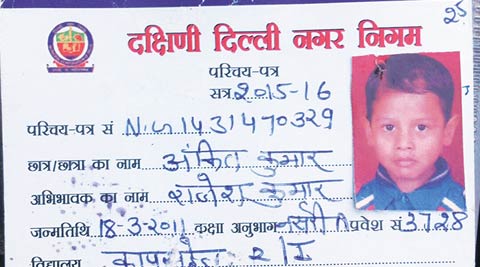 25
दक्षिणी दिल्ली नगर निगम
परिचय-पत्र
सत्र 2015-16
परिचय-पत्र सं N.S1431470329
छात्र/छात्रा का नाम अंकित कुमार
अभिभावक का नाम राजेश कुमार
जन्मतिथि 18-3-2011 कक्षा अनुभाग नर्सरी A प्रवेश सं 3728
विद्यालय